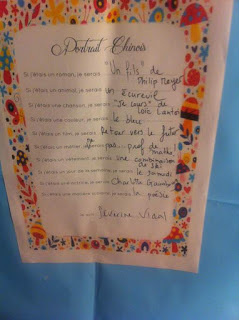 Portrait Chinois
Si j'étais un roman, je serais "Un fils" de
Philip Meyer
Si j'étais un animal, je serais un Ecureuil
Si j'étais une chanson, je serais "Je cours" de
Si j'étais une couleur, je serais le bleu
Si j'étais un film, je serais Retour vers le futur
Si j'étais un métier je pas... prof de
maths
Si j'étais un vêtement, je serais une combinaison
de ski
Si j'étais un jour de la semaine, je serais le samedi
Si j'étais une actrice, je serais Charlotte
Si j'étais une matière scolaire, je serais la poésie
Séverine Vidal